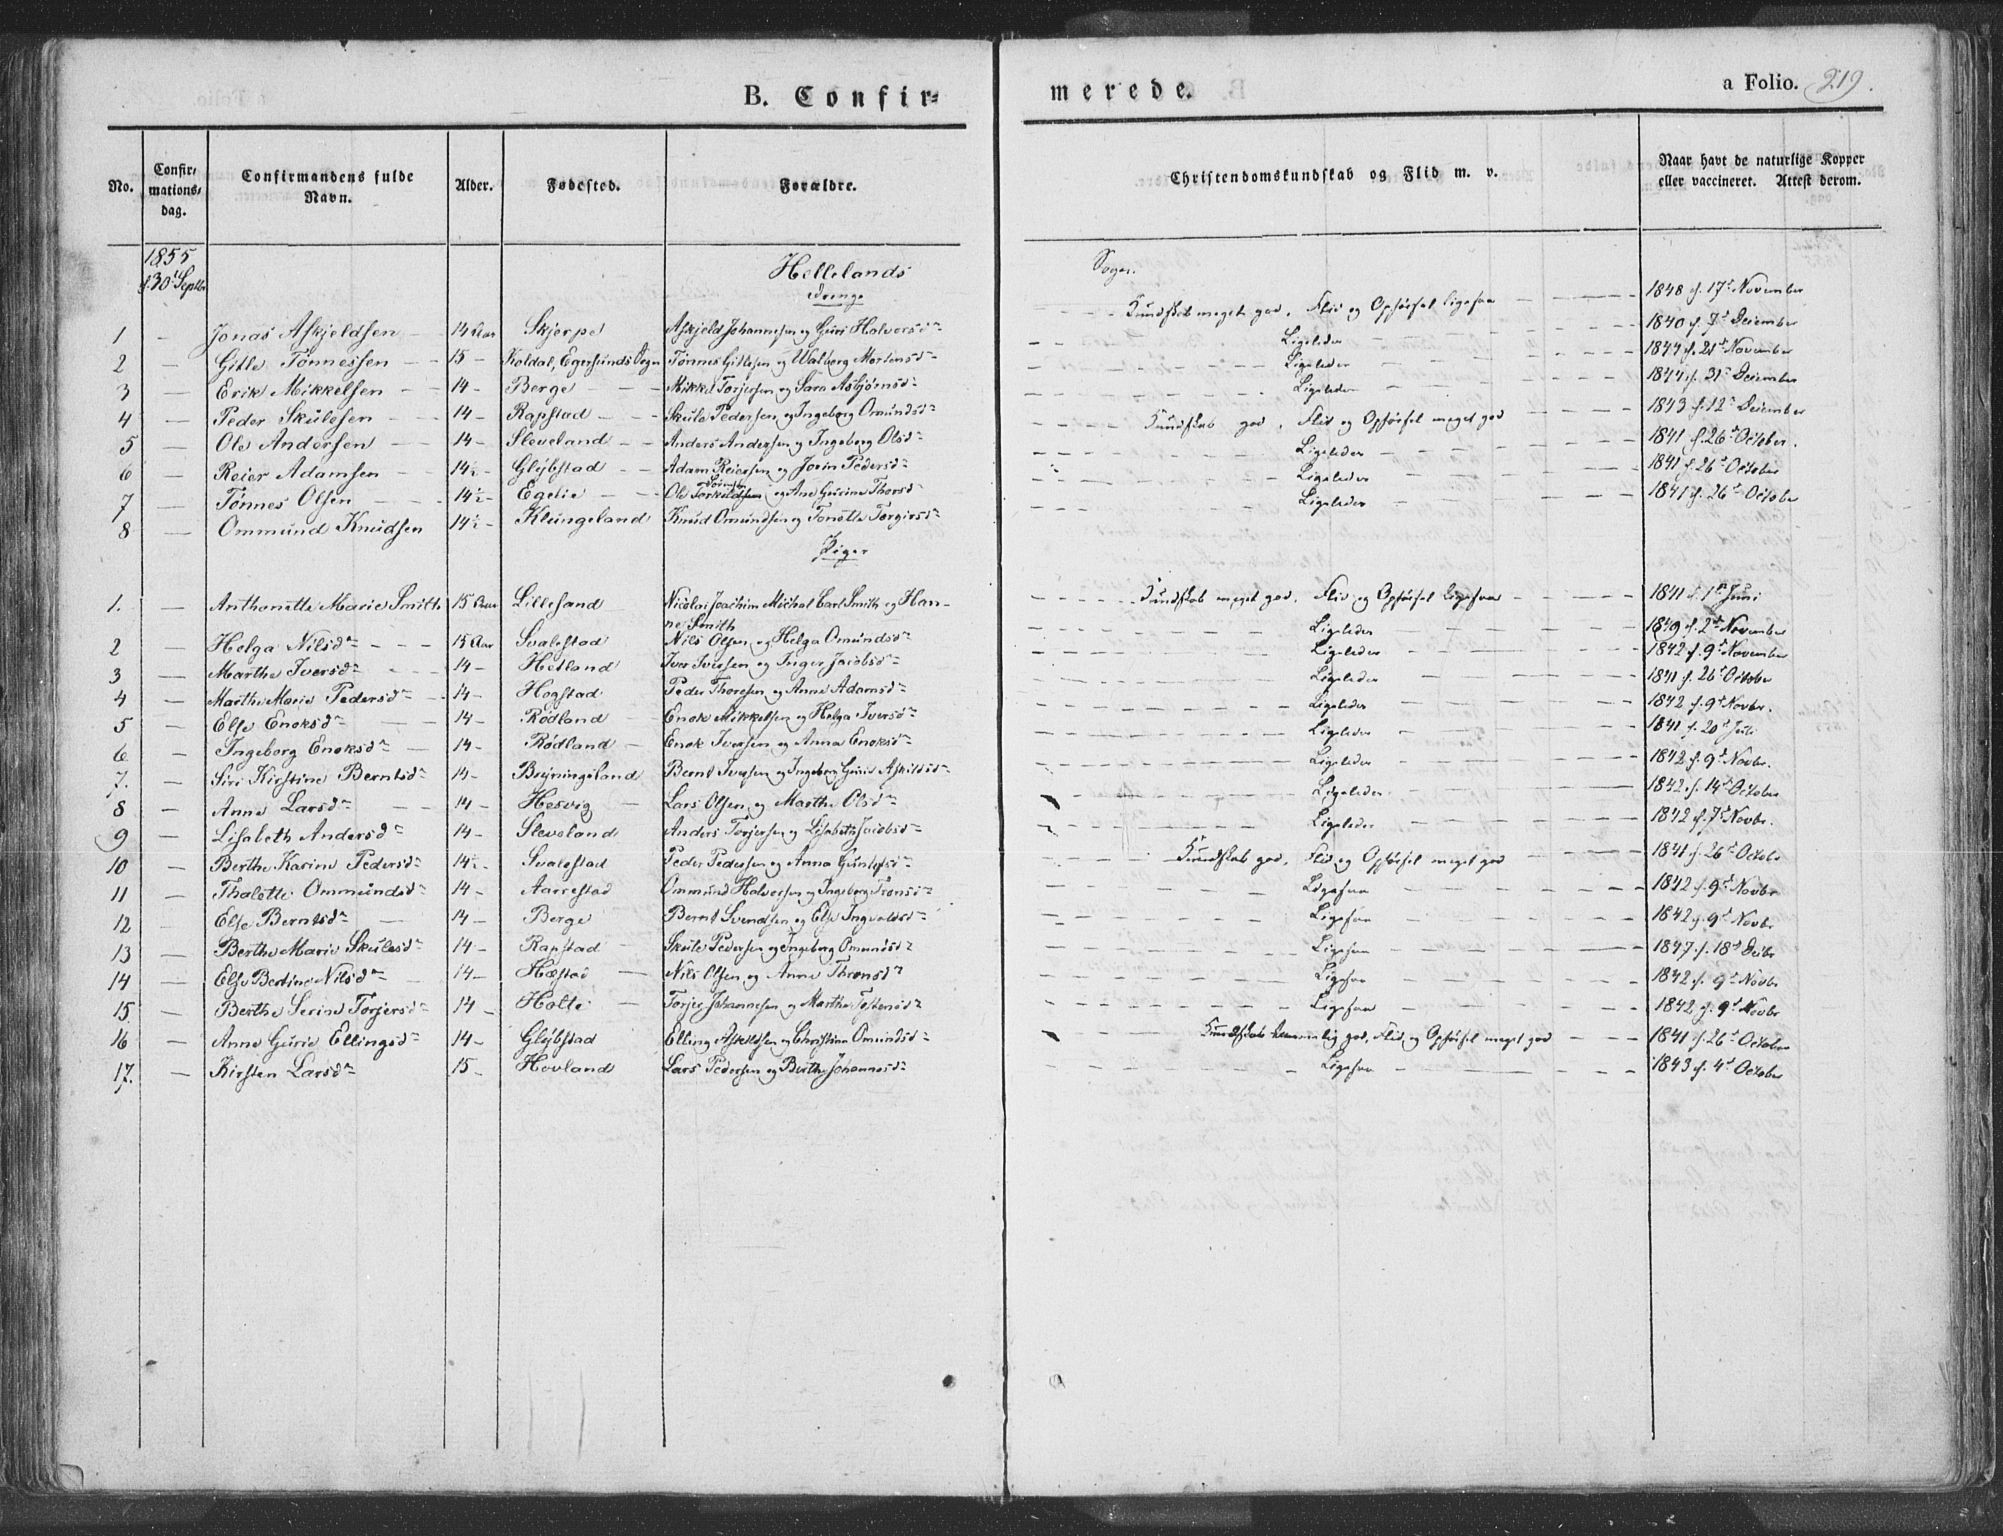 B. Confir-
merede.
a Folio. 219.
No.
Confir-
mations-
dag.
Confirmandens fulde
Navn.
Alder.
Fødested.
Forældre.
Christendomskundskab og Flid m. v.
Naar havt de naturlige Kopper
eller vaccineret. Attest derom.
1855
d. 30t Septbr
Hellelands Sogn.
Drenge
1 — Jonas Askjeldsen — 14 Aar Skjerpe Askjeld Johannesen og Guri Halversdr Kundskab meget god, Flid og Opførsel ligesaa 1848 d. 17t November
2 — Gitle Tønnessen — 15 — Koldal, Egersunds Sogn Tønnes Gitlesen og Walborg Mortensdr Ligeledes 1840 d. 7t December
3 — Erik Mikkelsen — 14 — Berge Mikkel Torjersen og Sara Asbjørnsdr Ligeledes 1844 d. 21t November
4 — Peder Skulesen 14 — Rapstad Skule Pedersen og Ingeborg Omundsdr Ligeledes 1844 d. 31t December
5 — Ole Andersen 14 — Sleveland Anders Andersen og Ingeborg Olsdr Kundskab god, Flid og Opførsel meget god 1843 d. 12t December
6 — Reier Adamsen 14½ Gljbstad Adam Reiersen og Jorin Pedersdr Ligeledes 1841 d. 26t October.
7 — Tønnes Olsen 14½ Egelie Ole Torkildsen og Ane Gurine Thorsdr Ligeledes 1841 d. 26t October
8 — Ommund Knudsen 14½ Klungeland Knud Omundsen og Tonette Torgersdr Ligeledes 1841 d. 26t October
Piger
1. — Anthonette Marie Smith 15 Aar Lillesand Nicolai Joachim Michal Carl Smith og Han-
ne Smith Kundskab meget god, Flid og Opførsel ligesaa 1841 d. 1t Juni
2 — Helga Nilsdr 15 Aar Svalestad Nils Olsen og Helga Omundsdr Ligeledes 1849 d. 2t November
3 — Marthe Iversdr 14 — Hetland Iver Iversen og Inger Jacobsdr Ligeledes 1842 d. 9t November
4 — Marthe Marie Pedersdr 14 — Hogstad Peder Thoresen og Anne Adamsdr Ligeledes 1841 d. 26t October
5 — Else Enoksdr 14 — Rødland Enok Mikkelsen og Helga Iversdr Ligeledes 1842 d. 9t Novbr.
6 — Ingeborg Enoksdr 14 — Rødland Enok Iversen og Anna Enoksdr Ligeledes 1841 d. 20t Juli
7. — Siri Kirstine Berntsdr 14 — Brjningsland Bernt Iversen og Ingeborg Gurie Askildsdr Ligeledes 1842 d. 9t Novbr.
8 — Anne Larsdr 14 — Hesvig Lars Olsen og Marthe Olsdr Ligeledes 1842 d. 14t October
9 — Lisabeth Andersdr 14 — Sleveland Anders Torjersen og Lisabeth Jacobsdr Ligeledes 1842 d. 7t Novbr.
10 — Berthe Karine Pedersdr 14½ Svalestad Peder Pedersen og Anna Gunlefsdr Kundskab god, Flid og Opførsel meget god 1841 d. 26t Octobr
11 — Thalette Ommundsdr 14 — Aarrestad Ommund Halversen og Ingeborg Tronsdr Ligesaa 1842 d. 9t Novbr
12 — Else Berntsdr 14 — Berge Bernt Svendsen og Else Ingvoldsdr Ligesaa 1842 d. 9t Novbr
13 — Berthe Marie Skulesdr 14 — Rapstad Skule Pedersen og Ingeborg Omundsdr Ligesaa 1847 d. 18t Decbr
14 — Else Bertine Nilsdr 14 — Hæstad Nils Olsen og Anne Thronsdr Ligesaa 1842 d. 9t Novbr
15 — Berthe Serine Torjersdr 14 — Holte Torjer Johannesen og Marthe Tostensdr Ligesaa 1842 d. 9t Novbr
16 — Anne Gurie Ellingsdr 14 — Gljbstad Elling Askildsen og Christine Omundsdr Kundskab temmelig god, Flid og Opførsel meget god 1841 d. 26t October
17. — Kirsten Larsdr 15 — Hovland Lars Pedersen og Berthe Johannesdr Ligesaa 1843 d. 4t October